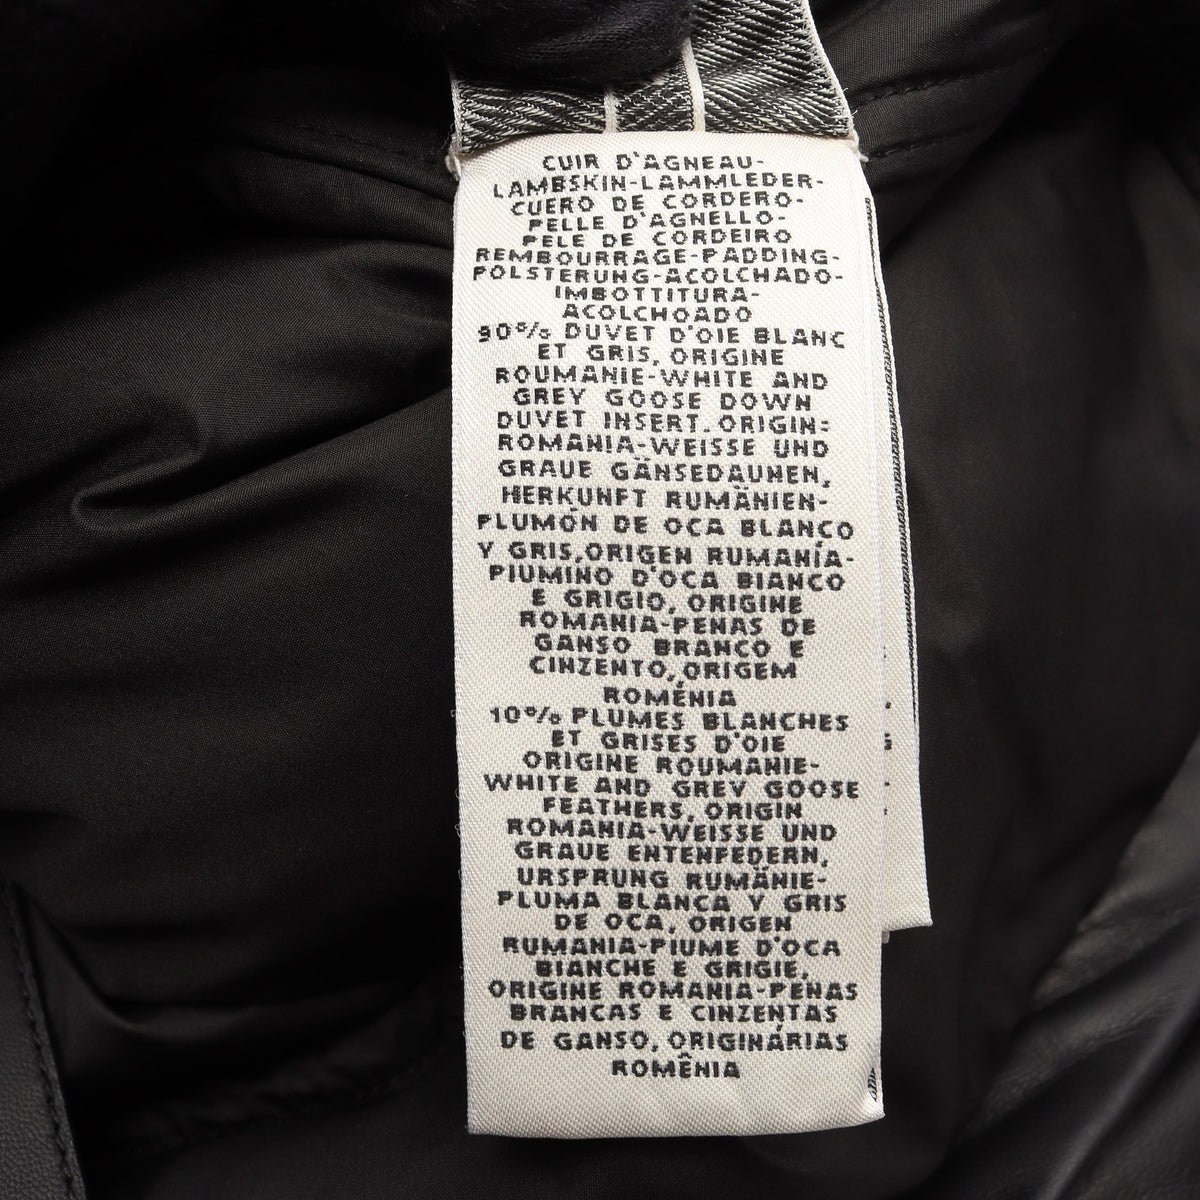 CUIR D'AGNEAU-
LAMBSKIN-LAMMLEDER-
CUERO DE CORDERO-
PELLE D'AGNELLO-
PELE DE CORDEIRO
REMBOURRAGE-PADDING-
POLSTERUNG-ACOLCHADO-
IMBOTTITURA-
ACOLCHOADO
90% DUVET D'OIE BLANC
ET GRIS, ORIGINE
ROUMANIE-WHITE AND
GREY GOOSE DOWN
DUVET INSERT.ORIGIN:
ROMANIA-WEISSE UND
GRAUE GÄNSEDAUNEN,
HERKUNFT RUMÄNIEN-
PLUMÓN DE OCA BLANCO
Y GRIS,ORIGEN RUMANÍA-
PIUMINO D'OCA BIANCO
E GRIGIO, ORIGINE
ROMANIA-PENAS DE
GANSO BRANCO E
CINZENTO, ORIGEM
ROMÉNIA
10% PLUMES BLANCHES
ET GRISES D'OIE
ORIGINE ROUMANIE-
WHITE AND GREY GOOSE
FEATHERS, ORIGIN
ROMANIA-WEISSE UND
GRAUE ENTENFEDERN,
URSPRUNG RUMÄNIE-
PLUMA BLANCA Y GRIS
DE OCA, ORIGEN
RUMANIA-PIUME D'OCA
BIANCHE E GRIGIE,
ORIGINE ROMANIA-PENAS
BRANCAS E CINZENTAS
DE GANSO, ORIGINÁRIAS
ROMÊNIA